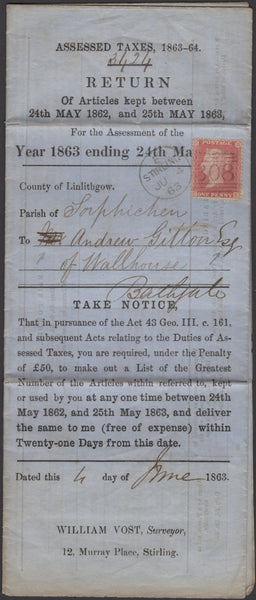 ASSESSED TAXES, 1863-64.
3424
RETURN
Of Articles kept between
24th MAY 1862, and 25th MAY 1863,
For the Assessment of the
Year 1863 ending 24th Ma
STIRLING
JU 4
63
308
ONE PENNY
County of Linlithgow.
Parish of Torphichen
To Andrew Gillon Esq
of Wallhouse
Bathgate
TAKE NOTICE,
That in pursuance of the Act 43 Geo. III. c. 161,
and subsequent Acts relating to the Duties of As-
sessed Taxes, you are required, under the Penalty
of £50, to make out a List of the Greatest
Number of the Articles within referred to, kept
or used by you at any one time between 24th
May 1862, and 25th May 1863, and deliver
the same to me (free of expense) within
Twenty-one Days from this date.
Dated this 4 day of June 1863.
WILLIAM VOST, Surveyor,
12, Murray Place, Stirling.